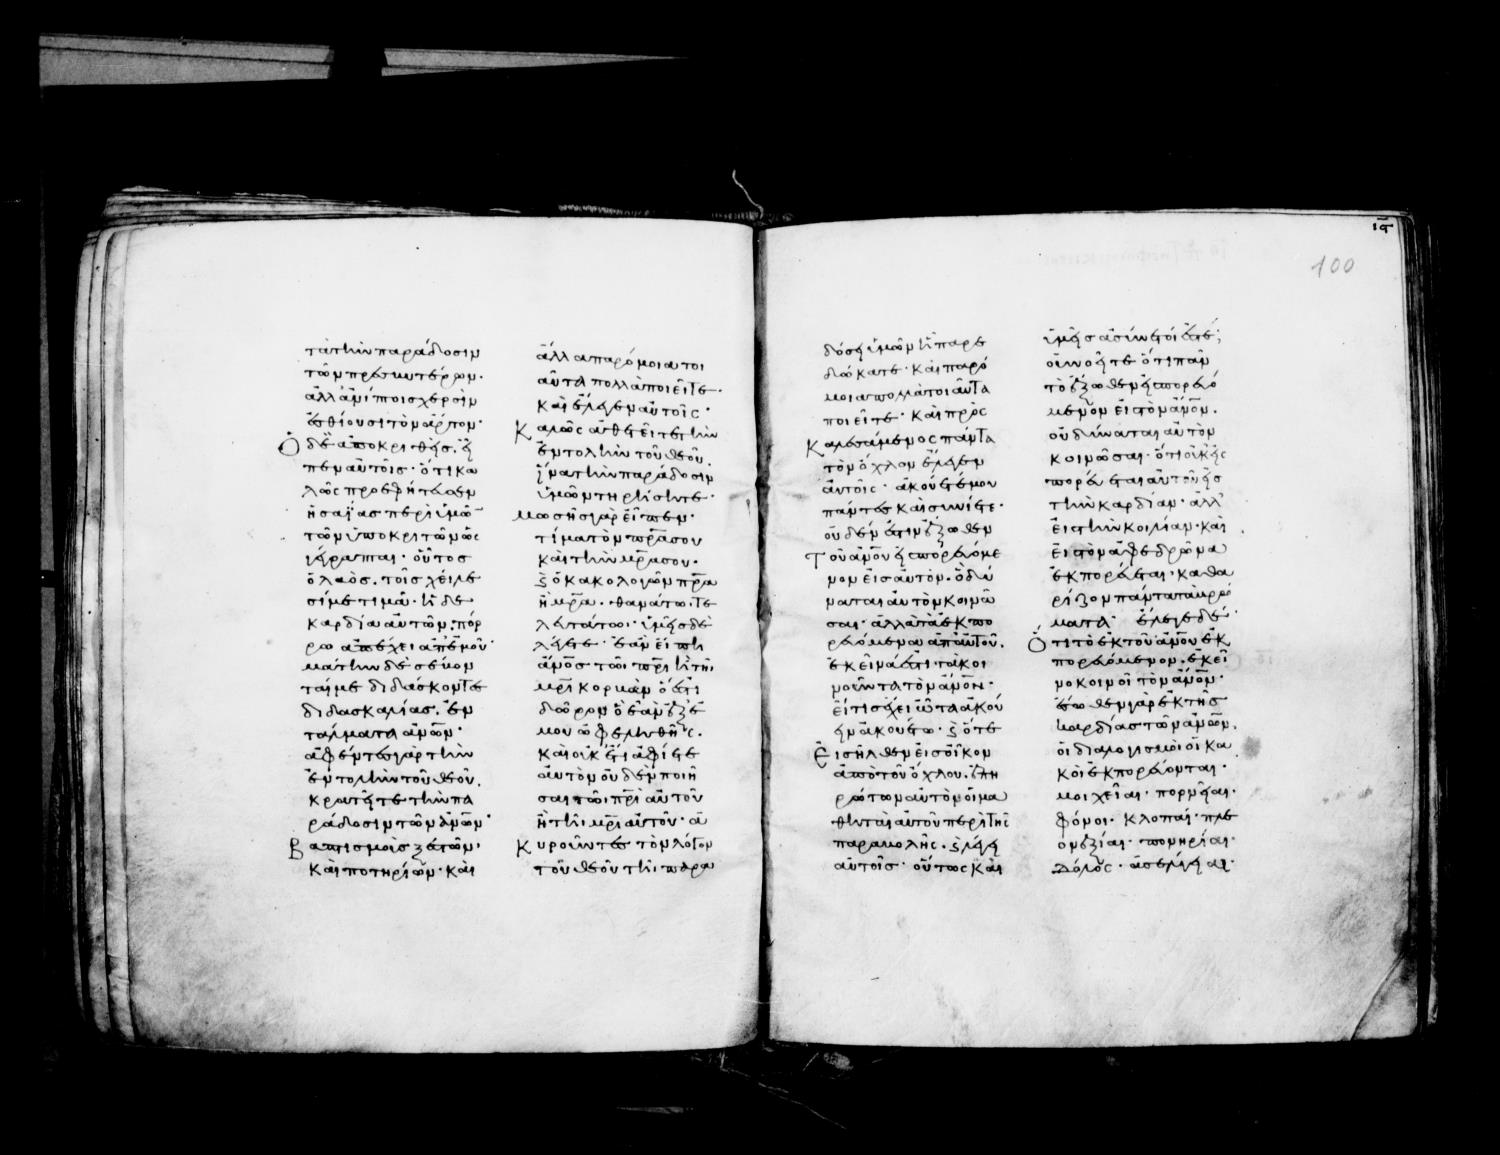 ιϛ
100
τὰ τὴν παράδοσιν
τῶν πρεσβυτέρων·
ἀλλ ἀνίπτοις χερσὶν
ἐσθίουσι τὸν ἄρτον·
Ὁ δὲ ἀποκριθεὶς. εἶ
πεν αὐτοῖς· ὅτι κα
λῶς προεφήτευσεν
ἡσαΐας περὶ ὑμῶν
τῶν ὑποκριτῶν ὡς
γέγραπται· οὗτος
ὁ λαὸς. τοῖς χείλε
σί με τιμᾶ· ἡ δὲ
καρδία αὐτῶν· πόρ
ρω ἀπέχει ἀπ ἐμοῦ·
μάτην δὲ σέβον
ταί με διδάσκοντες
διδασκαλίας. ἐν
τάλματα ἀνων·
ἀφέντες γὰρ τὴν
ἐντολὴν τοῦ θεοῦ.
κρατεῖτε τὴν πα
ράδοσιν τῶν ἀνων·
Βαπτισμοὺς ξεστῶν·
καὶ ποτηρίων· καὶ
ἄλλα παρόμοια τοι
αῦτα πολλὰ ποιεῖτε·
καὶ ἔλεγεν αὐτοῖς·
Καλῶς ἀθετεῖτε τὴν
ἐντολὴν τοῦ θεοῦ.
ἵνα τὴν παράδοσιν
ὑμῶν τηρήσητε·
μωσῆς γὰρ εἶπεν·
τίμα τὸν πρα σου
καὶ τὴν μρα σου·
ϗ ὁ κακολογῶν πρα
ἢ μρα. θανάτω τε
λευτάτω· ὑμεῖς δὲ
λέγετε· ἐὰν εἴπη
ἀνος· τῶι πρι ἢ τῆι
μρι κορβὰν ὅ ἐστι
δῶρον ὃ ἐὰν ἐξ ἐ
μοῦ ὠφεληθῆς.
καὶ οὐκέτι ἀφίετε
αὐτὸν οὐδὲν ποιῆ
σαι τῶι πρι αὐτοῦ
ἢ τῆι μρι αὐτοῦ· ἀ
Κυροῦντες τὸν λόγον
τοῦ θεοῦ τῆι παρα
δόσει ὑμῶν ἧ παρε
δώκατε· καὶ παρό
μοια πολλὰ τοιαῦτα
ποιεῖτε· καὶ προς
Καλεσάμενος πάντα
τὸν ὄχλον ἔλεγεν
αὐτοῖς· ἀκούετέ μου
πάντες καὶ συνίετε·
οὐδέν ἐστιν ἔξωθεν
Τοῦ ἀνου εἰσπορευόμε
νον εἰς αὐτὸν. ὃ δύ
ναται αὐτὸν κοινῶ
σαι· ἀλλὰ τὰ ἐκπο
ρευόμενα ἀπ αὐτοῦ.
ἐκεῖνά ἐστι τὰ κοι
νοῦντα τὸν ἀνον·
εἴ τις ἔχει ὦτα ἀκού
ειν ἀκουέτω· ϗ ὅτε
Εἰσῆλθεν εἰς οἶκον
ἀπὸ τοῦ ὄχλου. ἐπη
ρώτων αὐτὸν οἱ μα
θηταὶ αὐτοῦ περὶ τῆς
παραβολῆς. ϗ λέγει
αὐτοῖς· οὕτως καὶ
ὑμεῖς ἀσύνετοί ἐστε;
οὐ νοεῖτε ὅτι πᾶν
τὸ ἔξωθεν εἰσπορευό
μενον εἰς τὸν ἀνον.
οὐ δύναται αὐτὸν
κοινῶσαι· ὅτι οὐκ εἰς
πορεύεται αὐτοῦ εἰς
τὴν καρδίαν· ἀλλ
εἰς τὴν κοιλίαν· καὶ
εἰς τὸν ἀφεδρῶνα
ἐκπορεύεται· καθα
ρίζον πάντα τὰ βρώ
ματα· ἔλεγε δὲ
Ὅτι τὸ ἐκ τοῦ ἀνου ἐκ
πορευόμενον. ἐκεῖ
νο κοινοῖ τὸν ἀνον·
ἔσωθεν γὰρ ἐκ τῆς
καρδίας τῶν ἀνων.
οἱ διαλογισμοὶ οἱ κα
κοὶ ἐκπορεύονται·
μοιχεῖαι· πορνεῖαι·
φόνοι· κλοπαί· πλε
ονεξίαι· πονηρίαι·
δόλος· ἀσέλγειαι·